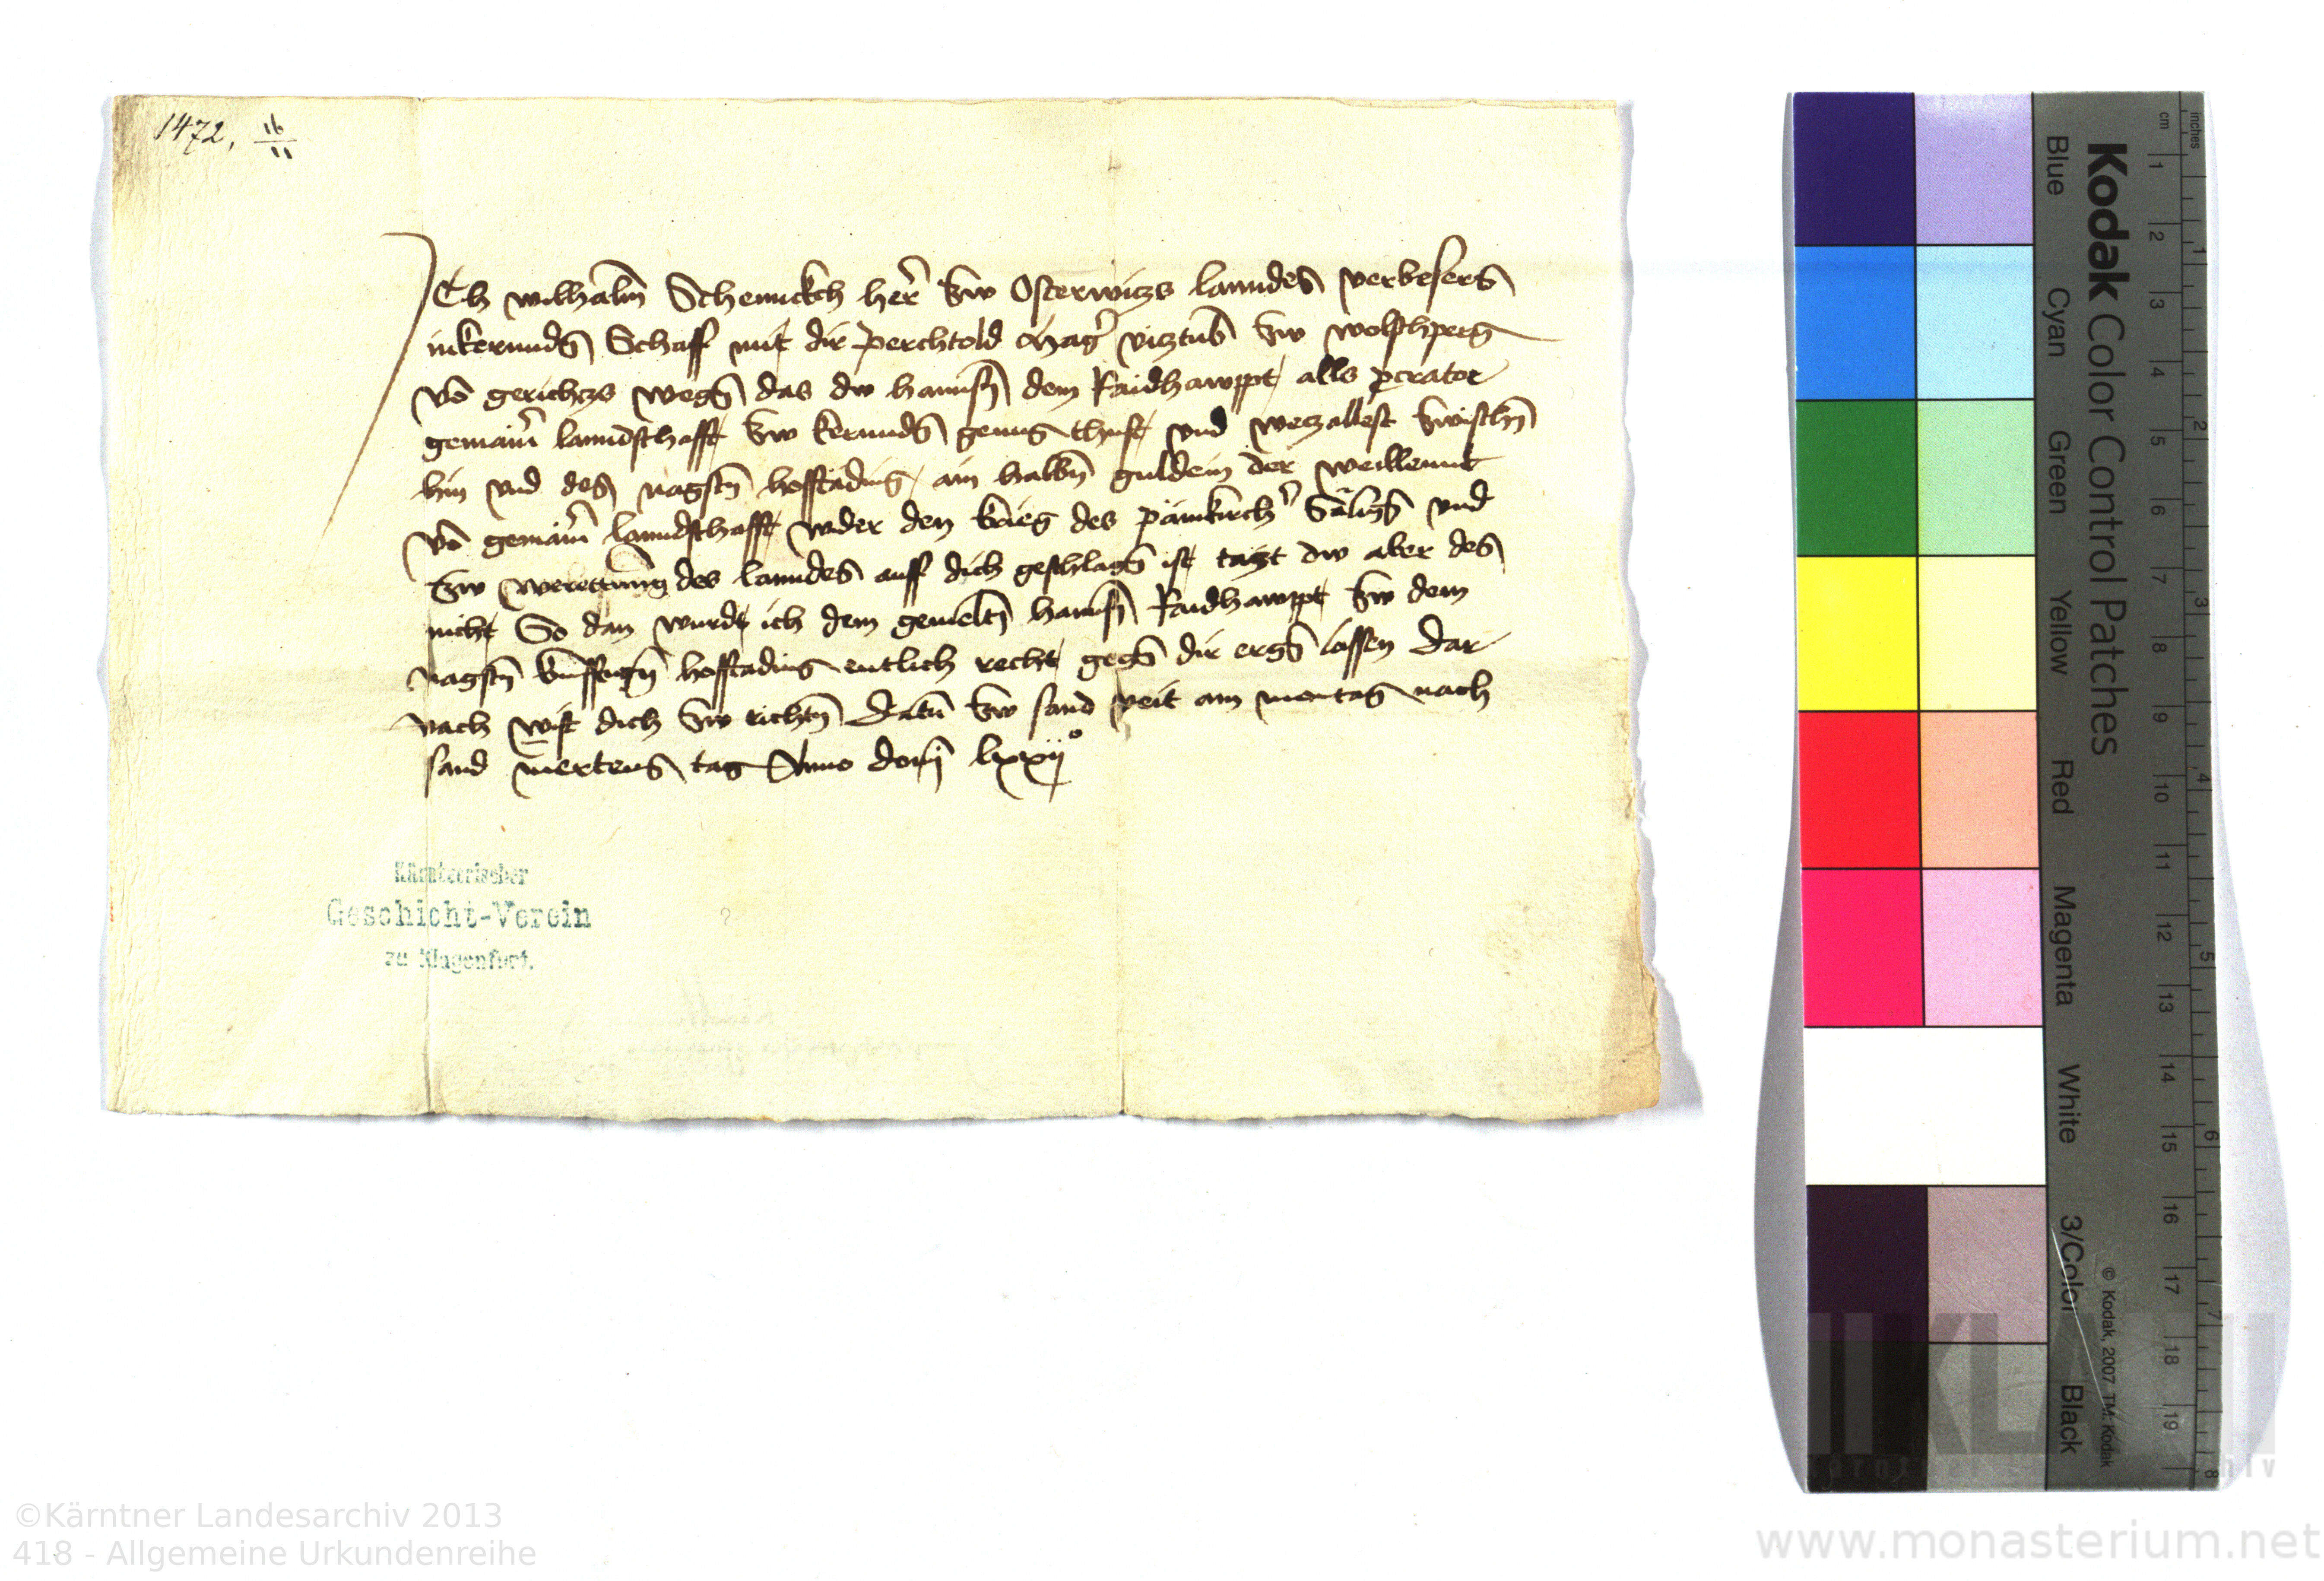 1472, 16/11
Ich wilhalm Schennckch herr zw Osterwitzs lanndes verbesers
in kernndn Schaff mit dir perchtold Mager viztub zw wolfhperg
von gerichczs wegen das dw hannsn dem Raidhawppt alls pcrator
gemainer lanndschafft zw kernndn genug thust und weczallest zwischn
hin und des nagstn hofftading ain halbn guldein der weillennt
von gemainer lanndschafft wider den krieg des pämkircher säligen und
zw werettung des lanndes auff dich geschlagen ist tätzt dw aber des
nicht So dan wurde ich dem gemeltn hannsn Raidhawppt zw dem
nagstn kunfftign hofftading entlich recht gegen dir ergen lassen Dar
nach wist dich zw richtn Datum zw sand veit am montag nach
sand mertens tag Anno domi lxxijº
Kärntnerischer
Geschicht-Verein
zu Klagenfurt.
Kodak Color Control Patches
Blue Cyan Green Yellow Red Magenta White 3/Color Black
© Kodak, 2007 TM: Kodak
cm 1 2 3 4 5 6 7 8 9 10 11 12 13 14 15 16 17 18 19
inches 1 2 3 4 5 6 7 8
©Kärntner Landesarchiv 2013
418 - Allgemeine Urkundenreihe
www.monasterium.net